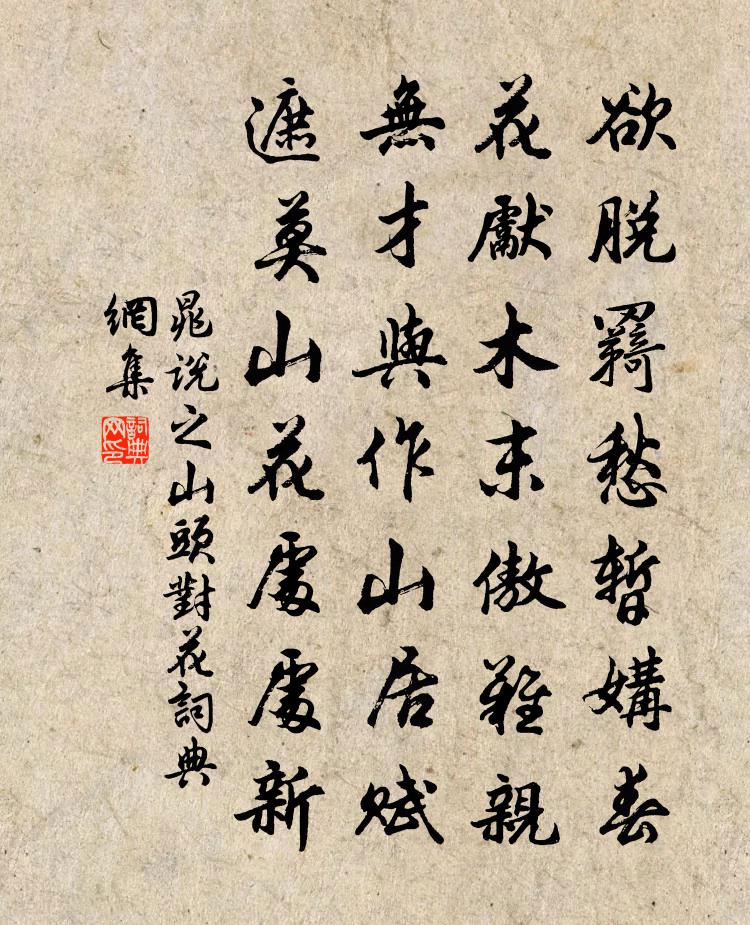 欲脫羇愁暫媾春
花獻木末傲難親
無才與作山居賦
遮莫山花處處新
晁說之山頭對花詞典
網集
詞典
网印